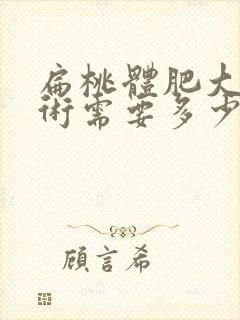 扁桃體肥大
術需要多少
顧言希